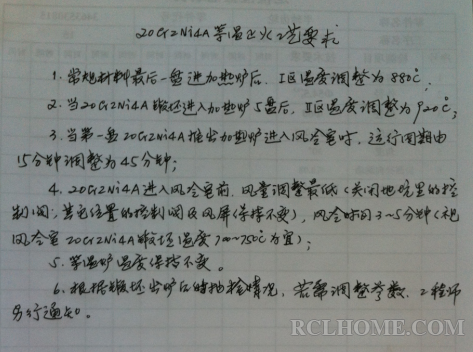 20Cr2Ni4A等温正火工艺要求
1. 常规材料最后一盘进加热炉后，I区温度调整为880℃;
2. 当20Cr2Ni4A锻坯进入加热炉5盘后，I区温度调整为920℃;
3. 当第一盘20Cr2Ni4A推出加热炉进入风冷室时，运行周期由
15分钟调整为45分钟;
4. 20Cr2Ni4A进入风冷室前，风量调整最低(关闭地坑里的控
制阀;其它位置的控制阀及风屏保持不变)，风冷时间3~5分钟(视
风冷室20Cr2Ni4A锻坯温度700~750℃为宜);
5. 等温炉温度保持不变。
6. 根据锻坯出炉后的抽检情况，若需调整参数，工程师
另行通知。
RCLHOME.COM